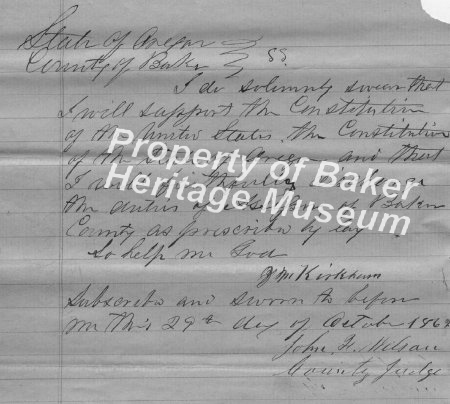 State of Oregon
County of Baker } SS
I do solemnly swear that
I will support the Constitution
of the United States, the Constitution
of the State of Oregon and that
I will
the duties of of Baker
County as prescribed by law
So help me God
J M Kirkham
Subscribed and sworn to before
me this 29th day of October 186
John H.
County Judge
Property of Baker
Heritage Museum